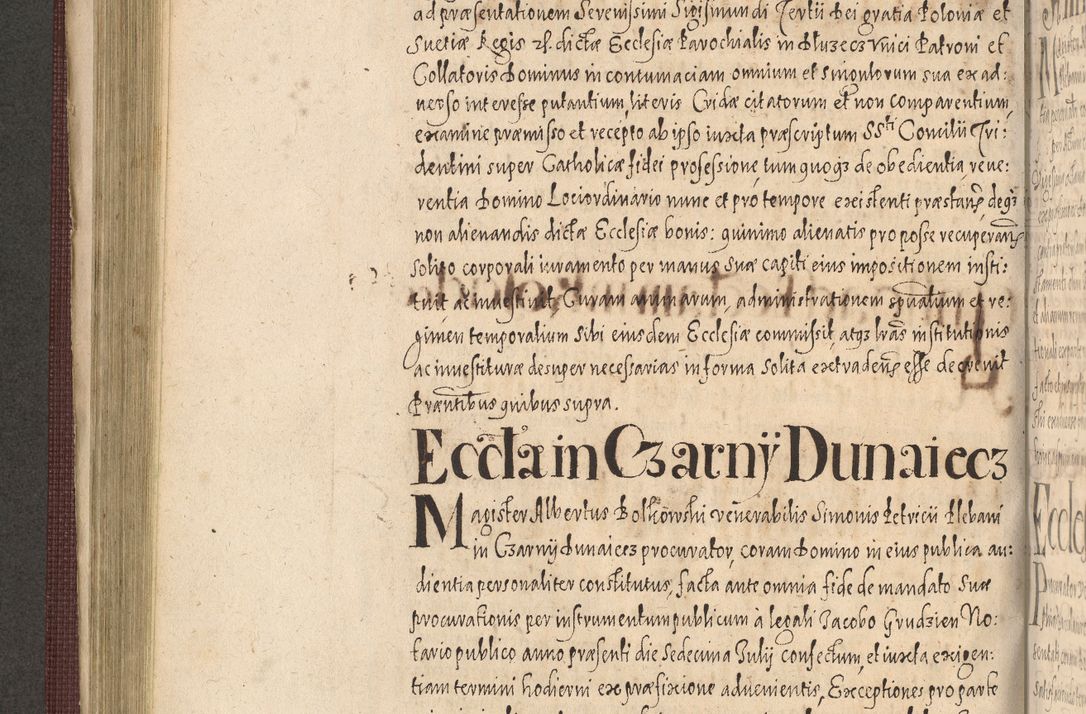 ad præsentationem Serenissimi Sigismundi Tertii Dei gratia Poloniæ et
Suetiæ Regis dictæ Ecclesiæ Parochialis in Dłuzecz Vnici Patroni et
Collatoris Dominus in contumaciam omnium et singulorum sua ex ad:
uerso interesse putantium, literis Cridæ citatorum et non comparentium,
examine præmisso et recepto ab ipso iuxta præscriptum SSti Concilii Tri:
dentini super Catholicæ fidei professione, tum quoqz de obedientia reue:
rentia Domino Lociordinario nunc et pro tempore existenti præstan, deqz
non alienandis dictæ Ecclesiæ bonis: quinimo alienatis pro posse recuperan
solito corporali iuramento per manus suæ capiti eius impositionem insti:
tuit ac inuestiuit, Curam animarum, administrationem spualium et re:
gimen temporalium Sibi eiusdem Ecclesiæ commisit, atqz lras institutionis
ac inuestituræ desuper necessarias in forma solita extraden esse decreuit
Præntibus quibus supra.
Eccła in Czarnÿ Dunaiecz
Magister Albertus Bolkowski venerabilis Simonis Petricii Plebani
in Czarnÿ Dunaiecz procurator, coram Domino in eius publica au:
dientia personaliter constitutus, facta ante omnia fide de mandato suæ
procurationis per instrumentum publicum à legali Jacobo Grudzien No:
tario publico anno præsenti die Sedecima Julij confectum, et iuxta exigen:
tiam termini hodierni ex præfixione aduenientis, Exceptiones pro parte